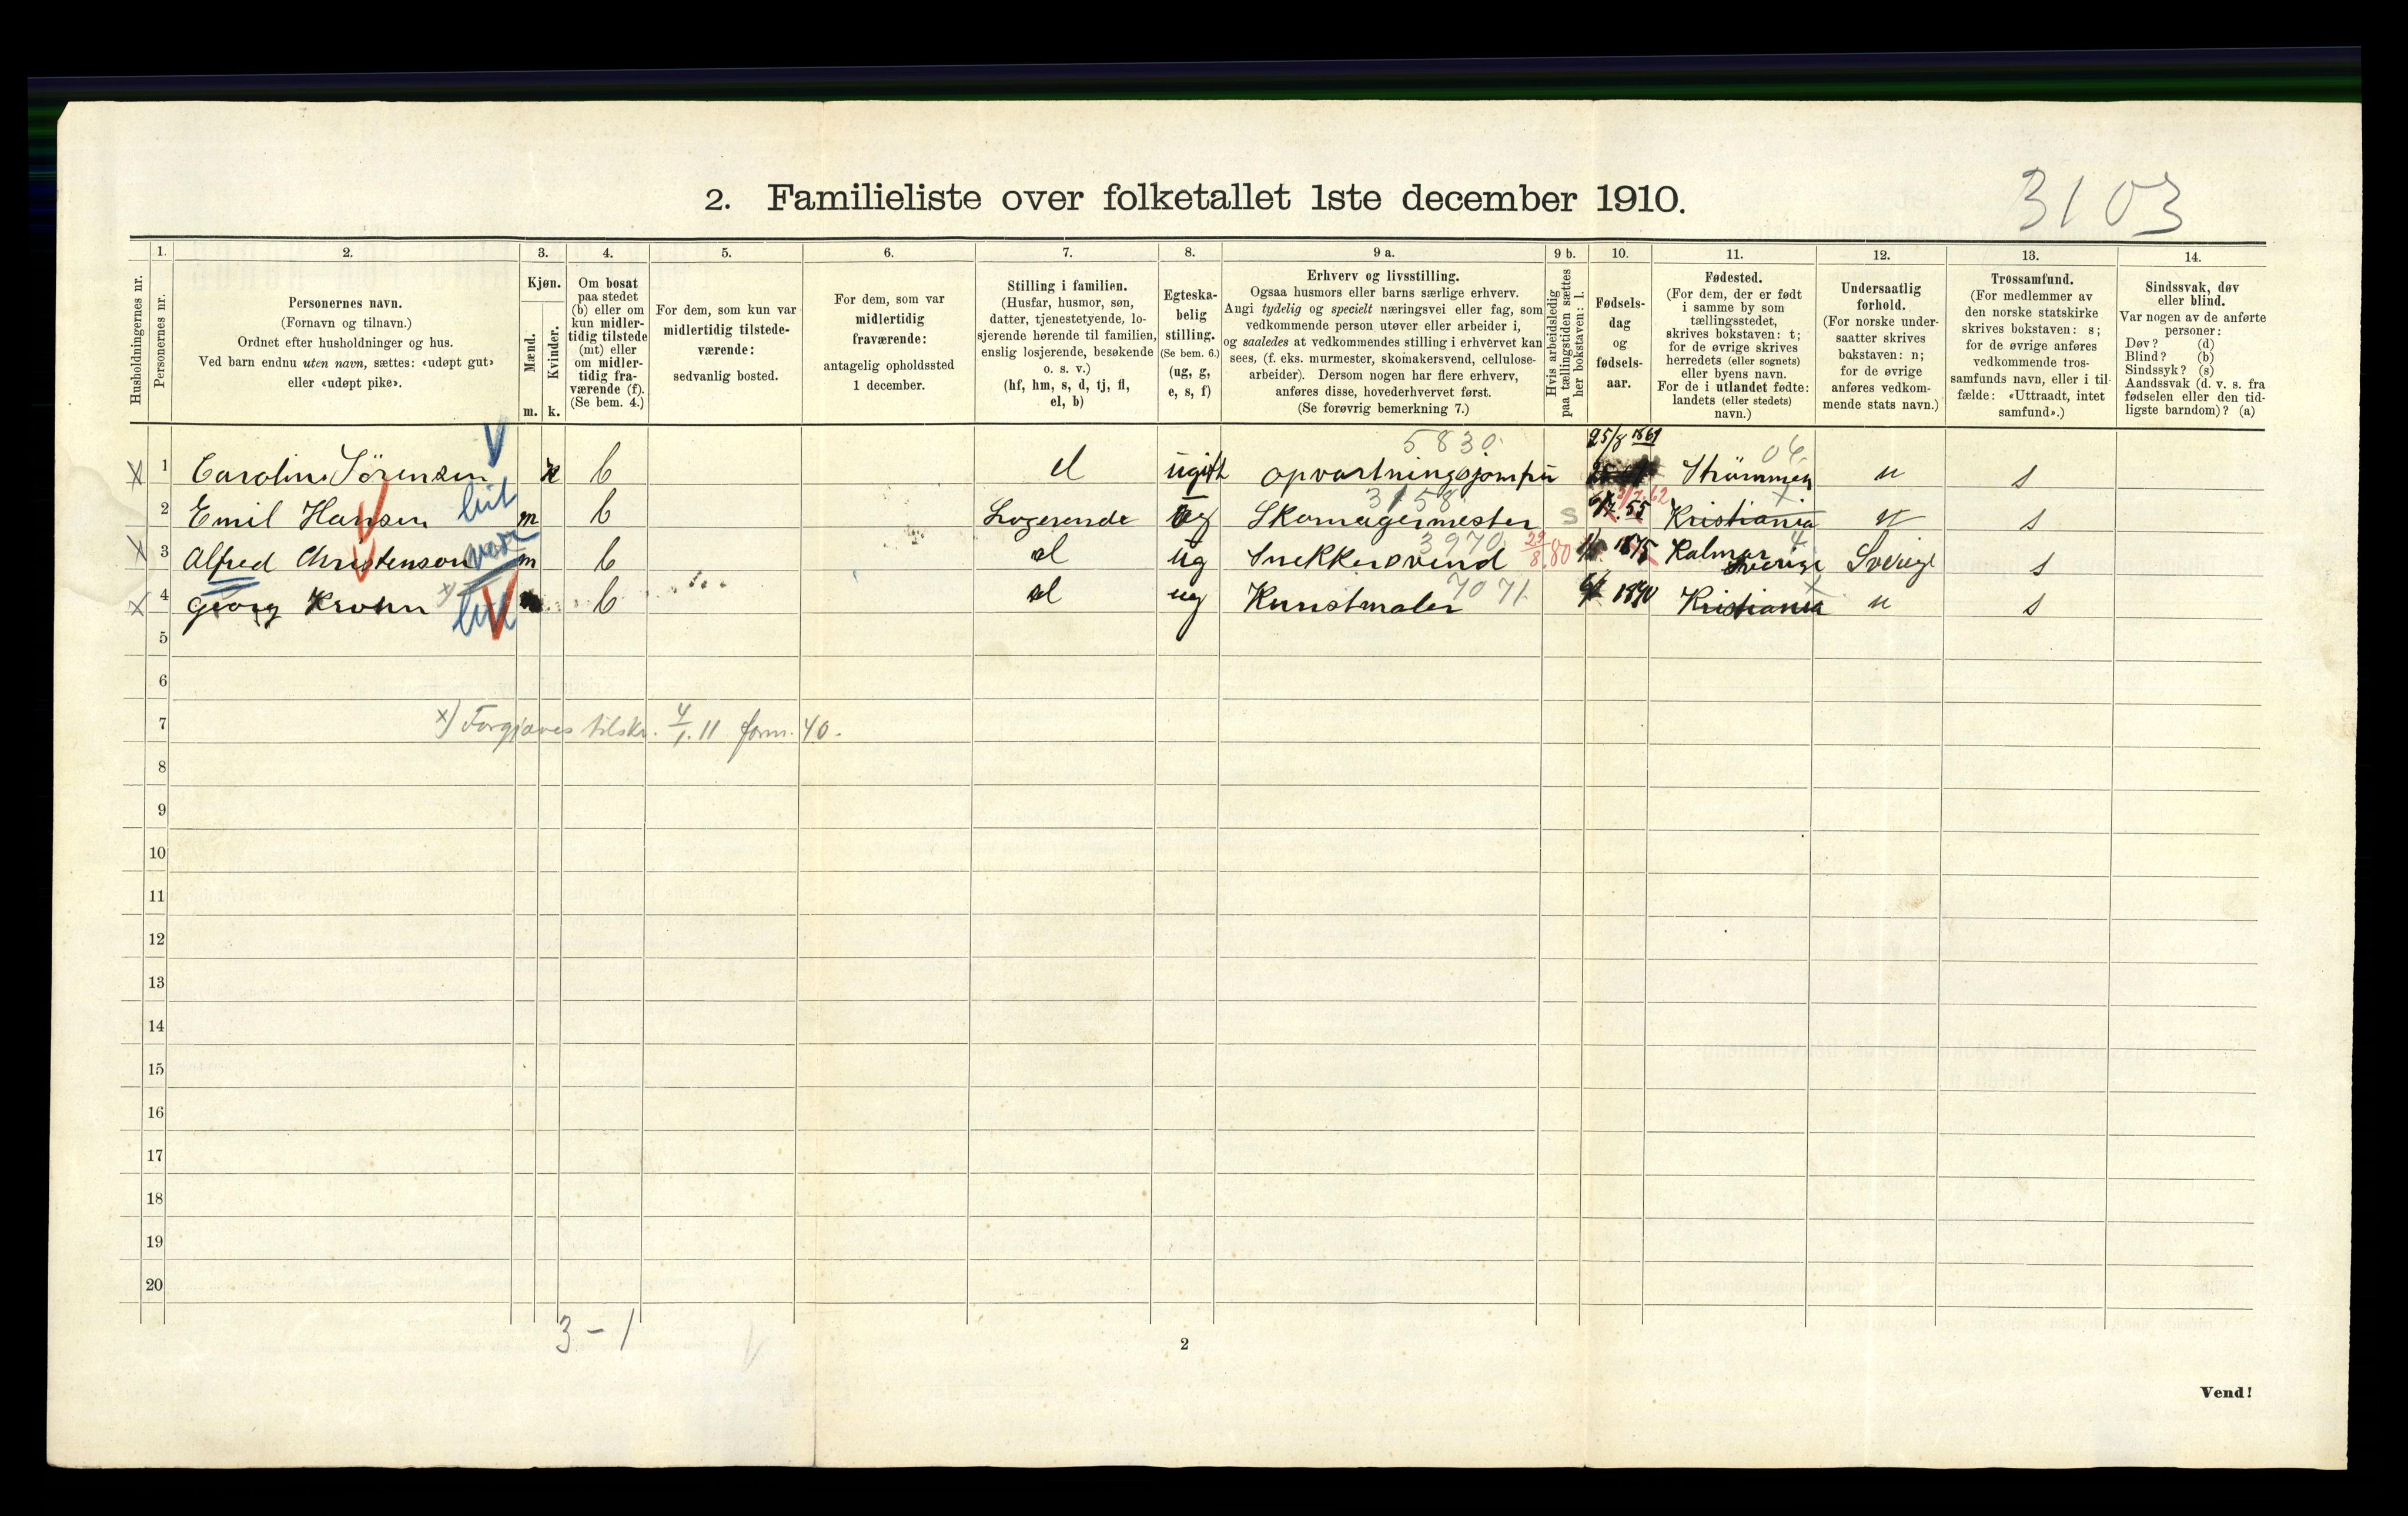 3103
2. Familieliste over folketallet 1ste december 1910.
1. 2. 3. 4. 5. 6. 7. 8. 9 a. 9 b. 10. 11. 12. 13. 14.
Husholdningernes nr.
Personernes nr.
Personernes navn.
(Fornavn og tilnavn.)
Ordnet efter husholdninger og hus.
Ved barn endnu uten navn, sættes: «udøpt gut»
eller «udøpt pike».
Kjøn.
Mænd.
Kvinder.
m. k.
Om bosat
paa stedet
(b) eller om
kun midler-
tidig tilstede
(mt) eller
om midler-
tidig fra-
værende (f).
(Se bem. 4.)
For dem, som kun var
midlertidig tilstede-
værende:
sedvanlig bosted.
For dem, som var
midlertidig
fraværende:
antagelig opholdssted
1 december.
Stilling i familien.
(Husfar, husmor, søn,
datter, tjenestetyende, lo-
sjerende hørende til familien,
enslig losjerende, besøkende
o. s. v.)
(hf, hm, s, d, tj, fl,
el, b)
Egteska-
belig
stilling.
(Se bem. 6.)
(ug, g,
e, s, f)
Erhverv og livsstilling.
Ogsaa husmors eller barns særlige erhverv.
Angi tydelig og specielt næringsvei eller fag, som
vedkommende person utøver eller arbeider i,
og saaledes at vedkommendes stilling i erhvervet kan
sees, (f. eks. murmester, skomakersvend, cellulose-
arbeider). Dersom nogen har flere erhverv,
anføres disse, hovederhvervet først.
(Se forøvrig bemerkning 7.)
Hvis arbeidsledig
paa tællingstiden sættes
her bokstaven: l.
Fødsels-
dag
og
fødsels-
aar.
Fødested.
(For dem, der er født
i samme by som
tællingsstedet,
skrives bokstaven: t;
for de øvrige skrives
herredets (eller sognets)
eller byens navn.
For de i utlandet fødte:
landets (eller stedets)
navn.)
Undersaatlig
forhold.
(For norske under-
saatter skrives
bokstaven: n;
for de øvrige
anføres vedkom-
mende stats navn.)
Trossamfund.
(For medlemmer av
den norske statskirke
skrives bokstaven: s;
for de øvrige anføres
vedkommende tros-
samfunds navn, eller i til-
fælde: «Uttraadt, intet
samfund».)
Sindssvak, døv
eller blind.
Var nogen av de anførte
personer:
Døv? (d)
Blind? (b)
Sindssyk? (s)
Aandssvak (d. v. s. fra
fødselen eller den tid-
ligste barndom)? (a)
5830. 25/8 1861 06.
X 1 Carolin Sörensen k b el ugift opvartningsjomfru Strömmen n s
3158 62 X
2 Emil Hansen m b Logerende ug Skomagermester s 55 Kristiania n s
3970 29/8.80 4
X 3 Alfred Christenson m b el ug Snekkersvend 1875 Kalmar Sverige Sverige s
7071 X
X 4 Georg Krohn x) b el ug Kunstmaler 1890 Kristiania n s
5
6
7 x) Forgjæves tilskr. 4/1.11 form. 40.
8
9
10
11
12
13
14
15
16
17
18
19
20
3 - 1
2
Vend!